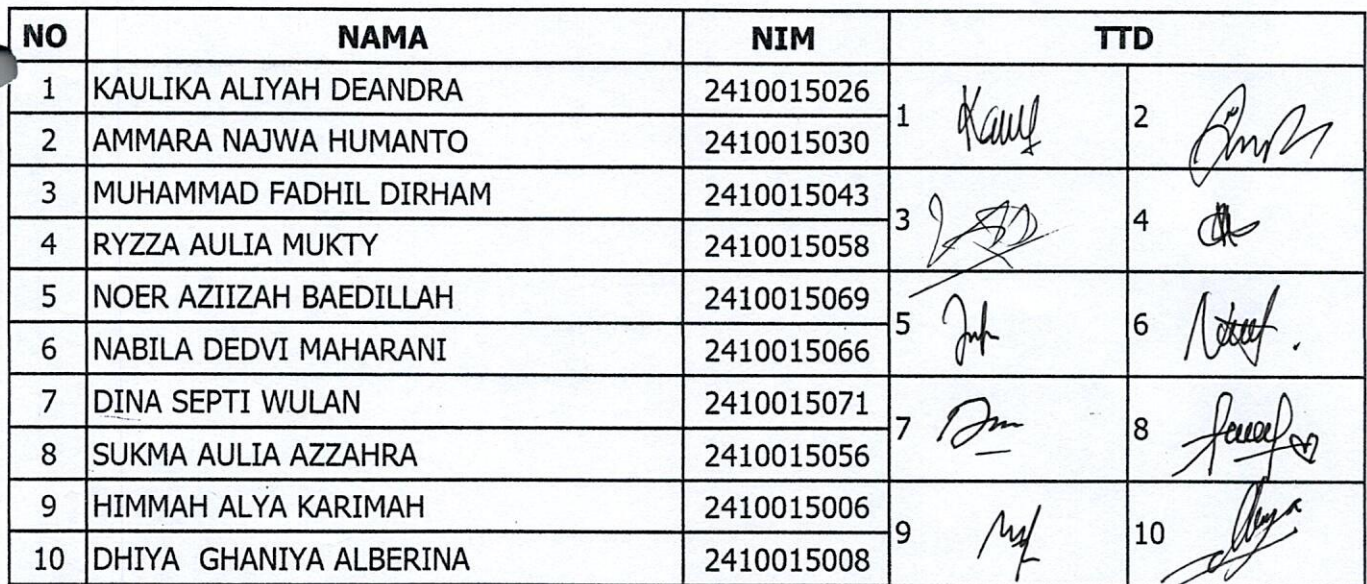 NO NAMA NIM TTD
1 KAULIKA ALIYAH DEANDRA 2410015026 1 2
2 AMMARA NAJWA HUMANTO 2410015030
3 MUHAMMAD FADHIL DIRHAM 2410015043 3 4
4 RYZZA AULIA MUKTY 2410015058
5 NOER AZIIZAH BAEDILLAH 2410015069 5 6
6 NABILA DEDVI MAHARANI 2410015066
7 DINA SEPTI WULAN 2410015071 7 8
8 SUKMA AULIA AZZAHRA 2410015056
9 HIMMAH ALYA KARIMAH 2410015006 9 10
10 DHIYA  GHANIYA ALBERINA 2410015008